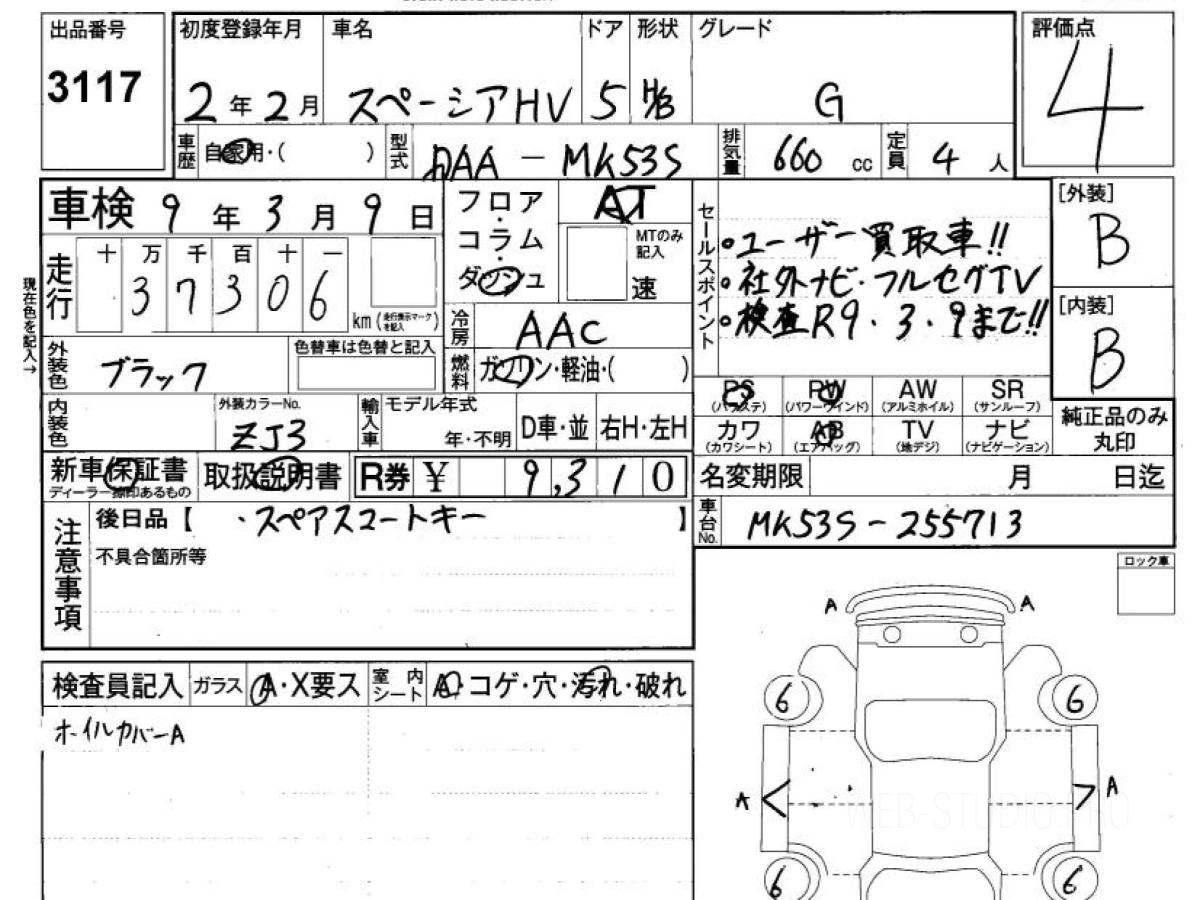 出品番号
3117
初度登録年月
2年2月
車名
スペーシアHV
ドア
5
形状
H/B
グレード
G
評価点
4
車歴
自家用・( )
型式
DAA-MK53S
排気量
660 cc
定員
4人
車検 9年3月9日
フロア・コラム・ダッシュ
AT
MTのみ記入
速
セールスポイント
・ユーザー買取車!!
・社外ナビ・フルセグTV
・検査R9.3.9まで!!
[外装]
B
[内装]
B
現在色を記入→
走行
十万千百十一
37306
km(走行表示マークを記入)
冷房
AAC
燃料
ガソリン・軽油・( )
外装色
ブラック
色替車は色替と記入
内装色
外装カラーNo.
ZJ3
輸入車
モデル年式
年・不明
D車・並
右H・左H
PS
(パワステ)
PW
(パワーウインド)
AW
(アルミホイル)
SR
(サンルーフ)
カワ
(カワシート)
AB
(エアバッグ)
TV
(地デジ)
ナビ
(ナビゲーション)
純正品のみ
丸印
新車保証書
ディーラー捺印あるもの
取扱説明書
R券 ¥ 9,310
名変期限 月 日迄
車台No.
MK53S-255713
注意事項
後日品【 ・スペアスコートキー 】
不具合箇所等
ロック車
検査員記入
ガラス
A・X要ス
室内シート
A・コゲ・穴・汚れ・破れ
ホイルカバーA
A
A
6
6
A
A
6
6
WEB-STUDIO.PRO